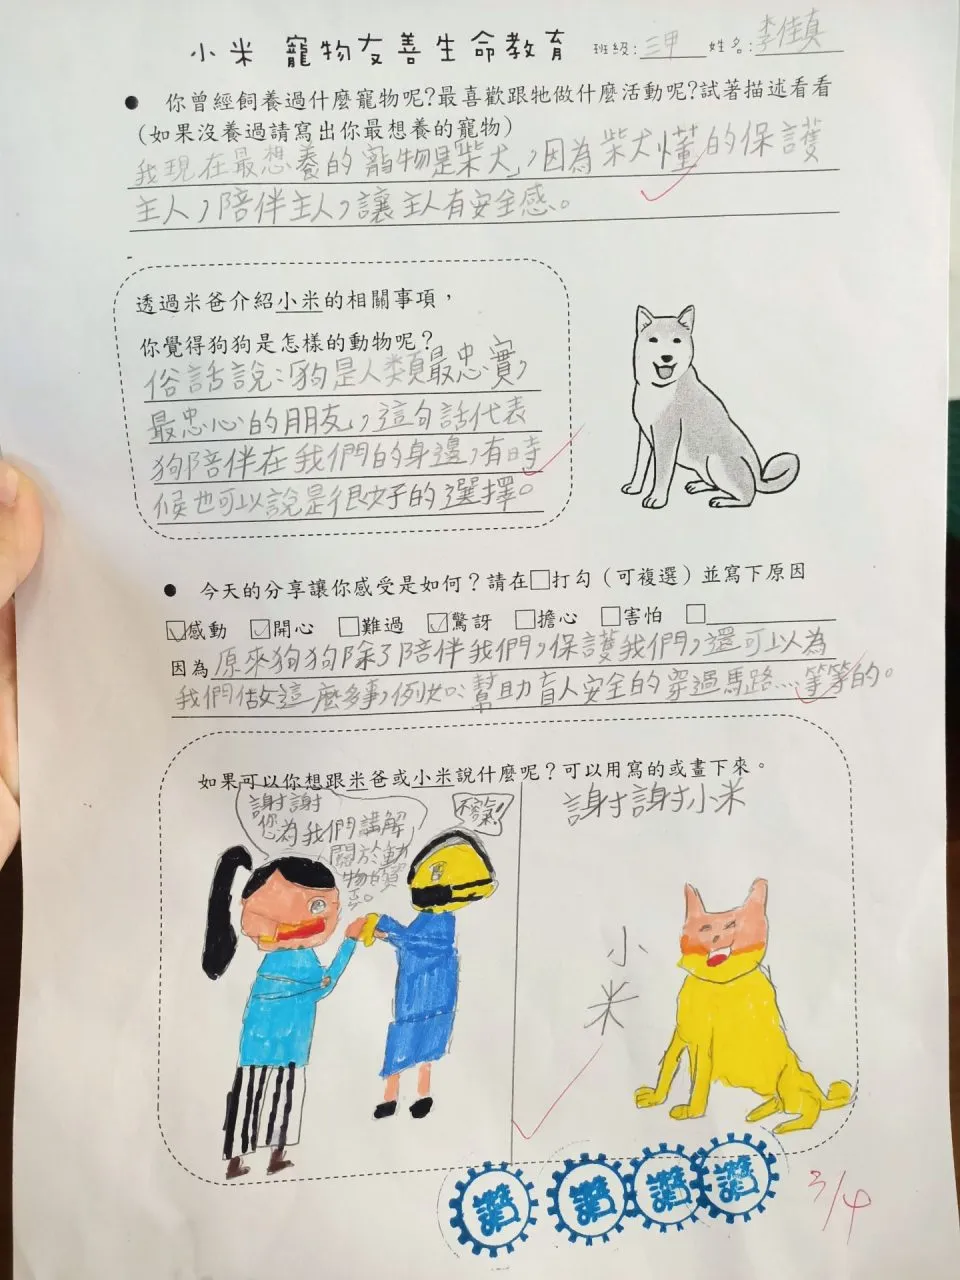 小米 寵物友善生命教育 班級:三甲 姓名:李佳真
● 你曾經飼養過什麼寵物呢?最喜歡跟牠做什麼活動呢?試著描述看看
(如果沒養過請寫出你最想養的寵物)
我現在最想養的寵物是「柴犬」,因為柴犬懂的保護
主人,陪伴主人,讓主人有安全感。
透過米爸介紹小米的相關事項,
你覺得狗狗是怎樣的動物呢?
俗話說:「狗是人類最忠實,
最忠心的朋友」,這句話代表
狗陪伴在我們的身邊,有時
候也可以說是很好的選擇。
● 今天的分享讓你感受是如何?請在□打勾(可複選)並寫下原因
☑感動 ☑開心 □難過 ☑驚訝 □擔心 □害怕 □
因為原來狗狗除了陪伴我們,保護我們,還可以為
我們做這麼多事,例如:幫助盲人安全的穿過馬路…等等的。
如果可以你想跟米爸或小米說什麼呢?可以用寫的或畫下來。
謝謝
您為我們講解
關於動
物的
不客氣!
謝謝小米
小
米
讚 讚 讚 讚
3/4